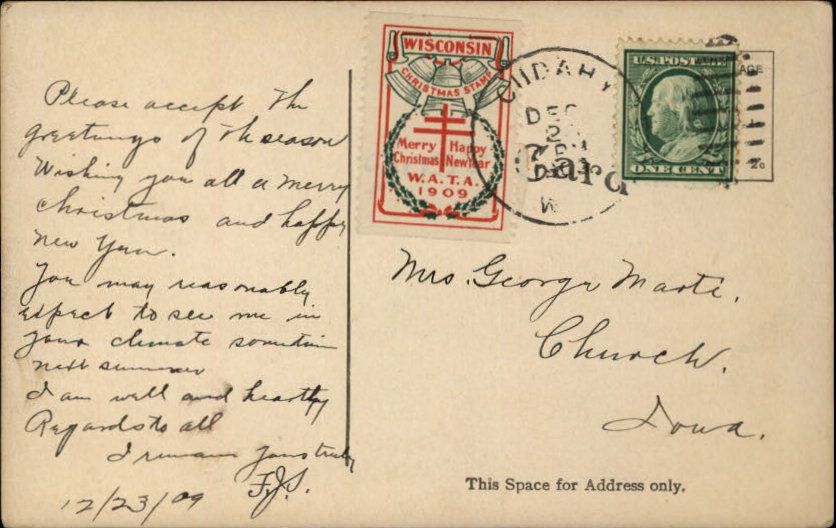 Please accept the
greetings of the season
Wishing you all a merry
christmas and happy
new year.
You may reasonably
expect to see me in
your climate sometime
next summer
I am well and hearthy
Regards to all
I remain yours truly
F.J.S.
12/23/09
WISCONSIN
CHRISTMAS STAMP
Merry Happy
Christmas New Year
W.A.T.A.
1909
CUDAHY
DEC
W
Card
U.S. POSTAGE
ONE CENT
AGE
2c
Mrs. George
Church.
Iowa.
This Space for Address only.